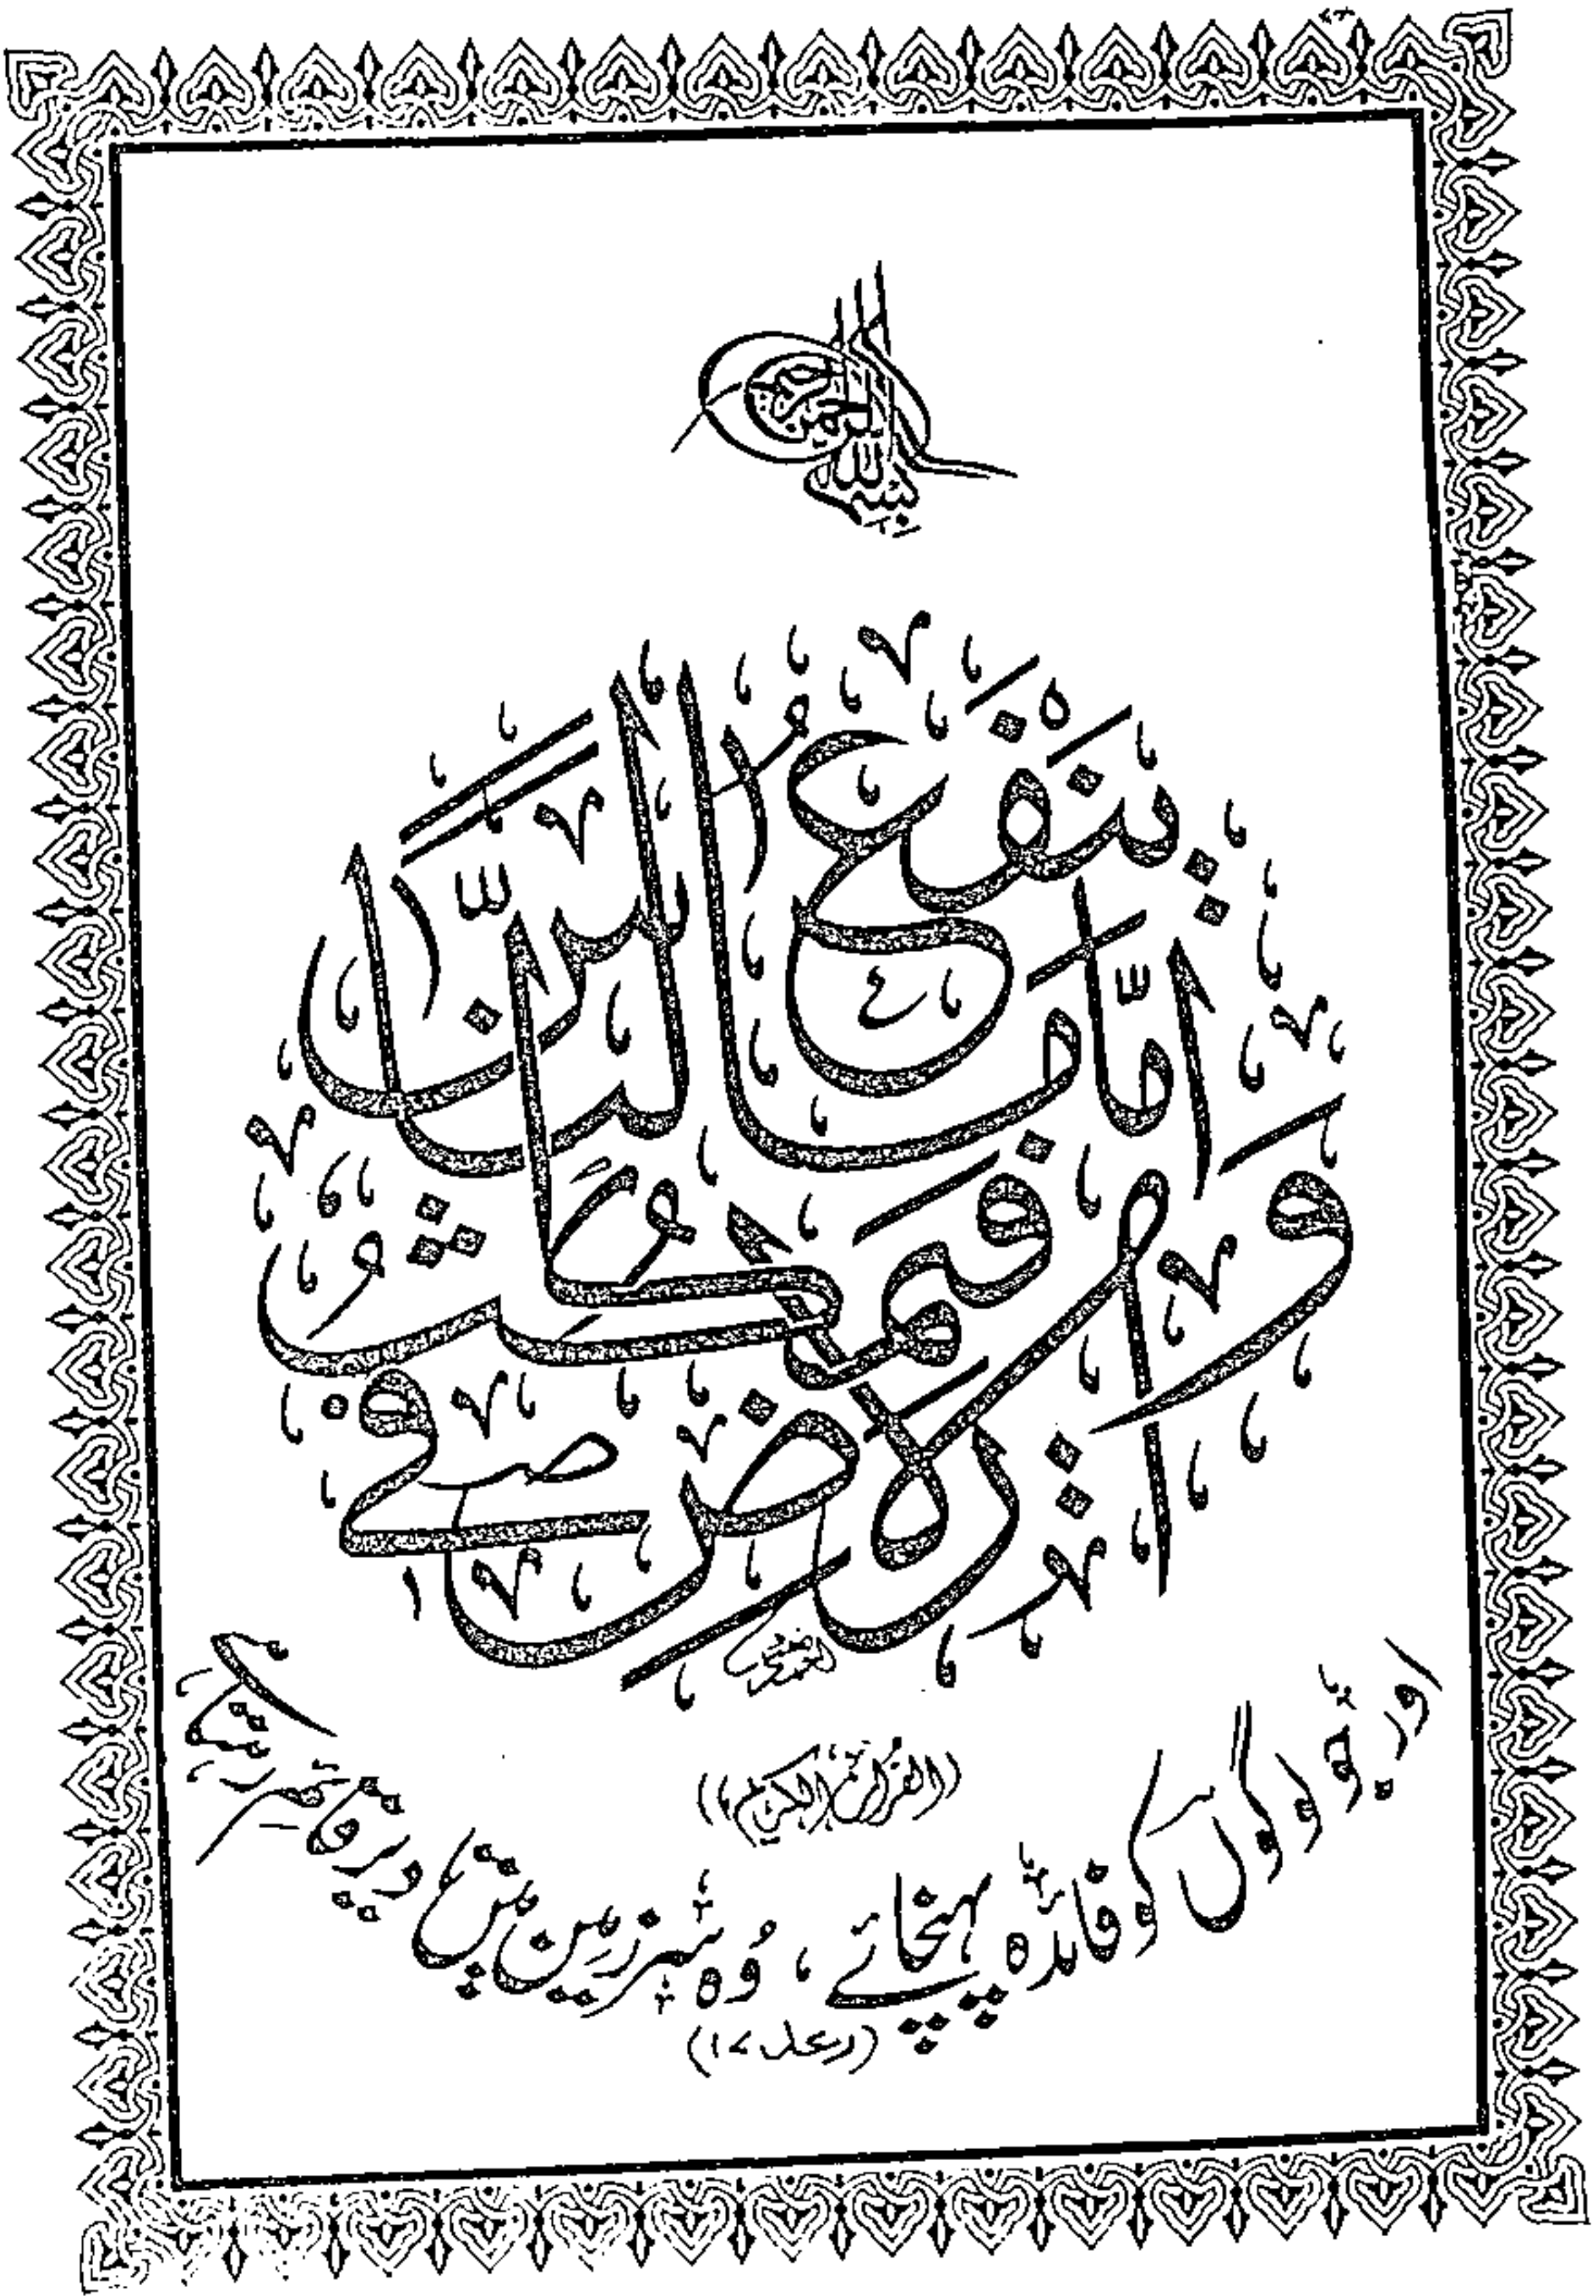 بسم الله الرحمن الرحيم
وَاَمَّا مَا يَنْفَعُ النَّاسَ فَيَمْكُثُ فِى الْاَرْضِ
((القرآن الكريم))
اور جو لوگوں کو فائدہ پہنچائے ، وُہ شے زمین میں تا دیر قائم رہتی ہے
(رعد ۱۷)